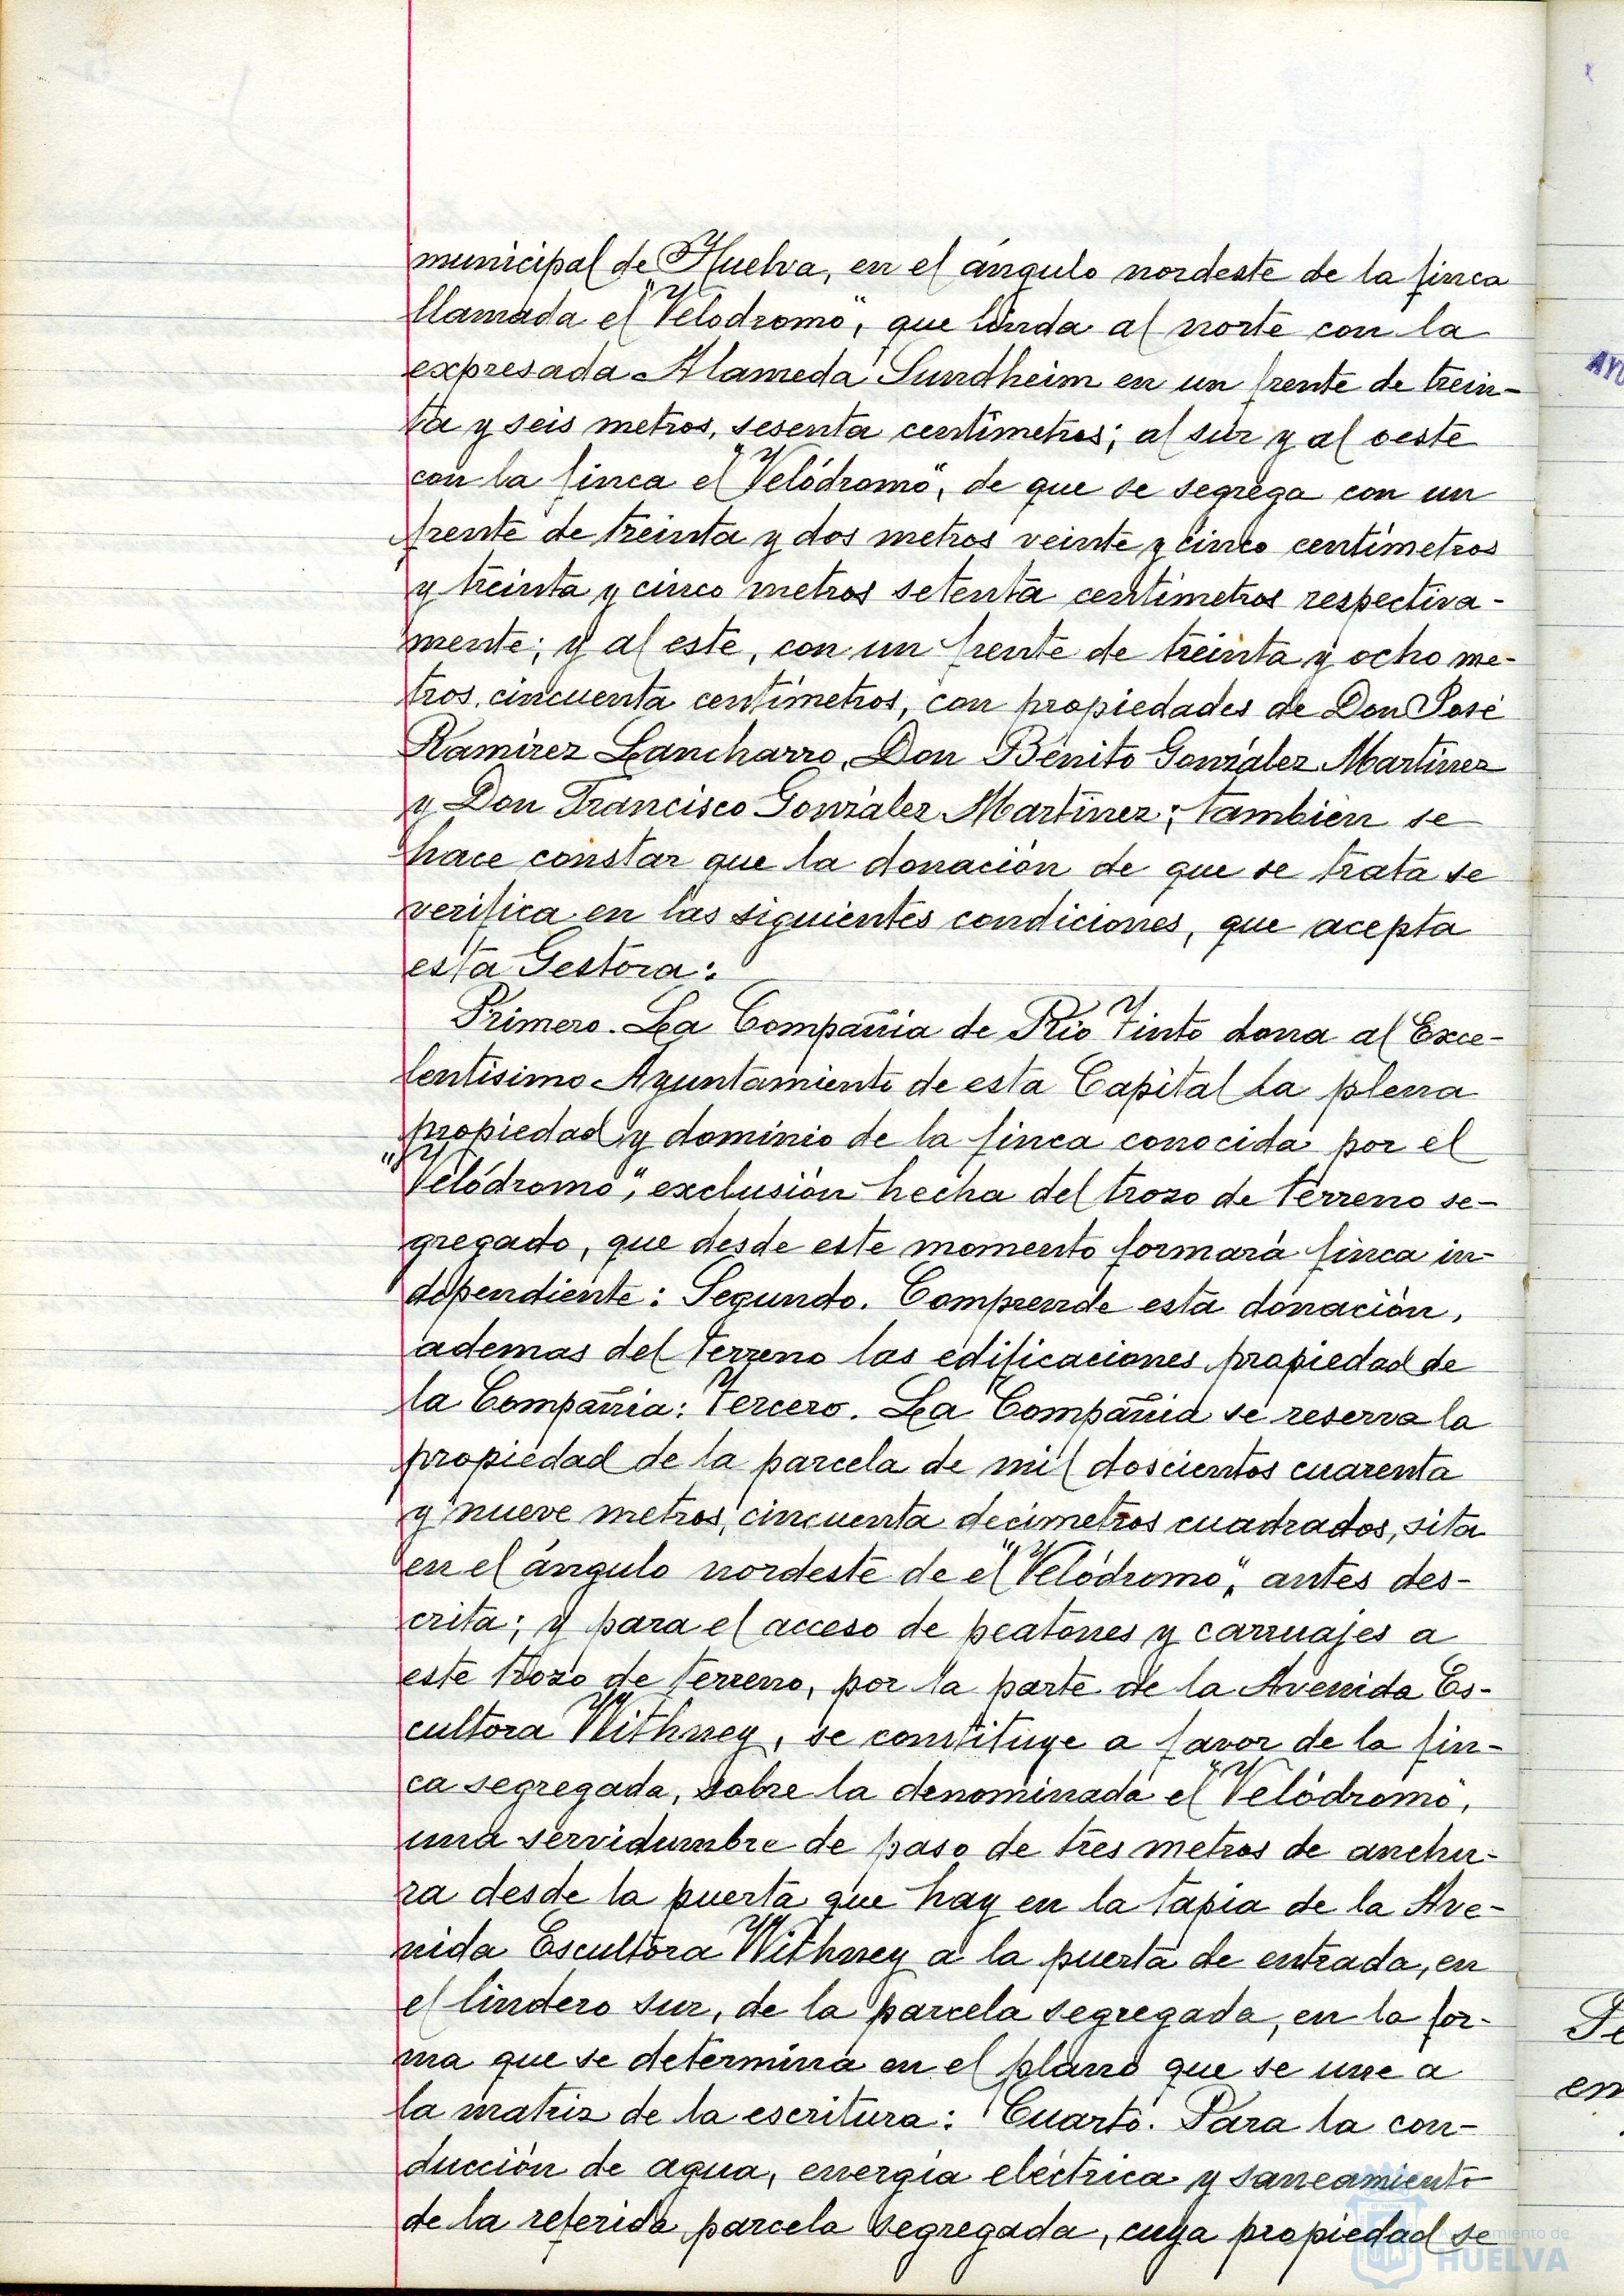 municipal de Huelva, en el ángulo nordeste de la finca
llamada el "Velodromo", que linda al norte con la
expresada Alameda Sundheim en un frente de trein-
ta y seis metros, sesenta centímetros; al sur y al oeste
con la finca el "Velódromo", de que se segrega con un
frente de treinta y dos metros veinte y cinco centímetros
y treinta y cinco metros setenta centímetros respectiva-
mente; y al este, con un frente de treinta y ocho me-
tros, cincuenta centímetros, con propiedades de Don José
Ramirez Lancharro, Don Benito González Martinez
y Don Francisco González Martinez; también se
hace constar que la donación de que se trata se
verifica en las siguientes condiciones, que acepta
esta Gestora:
Primero. La Compañia de Rio Tinto dona al Exce-
lentísimo Ayuntamiento de esta Capital la plena
propiedad y dominio de la finca conocida por el
"Velódromo", exclusión hecha del trozo de terreno se-
gregado, que desde este momento formará finca in-
dependiente: Segundo. Comprende esta donación,
ademas del terreno las edificaciones propiedad de
la Compañia: Tercero. La Compañia se reserva la
propiedad de la parcela de mil doscientos cuarenta
y nueve metros, cincuenta decimetros cuadrados, sita
en el ángulo nordeste de el "Velódromo", antes des-
crita; y para el acceso de peatones y carruajes a
este trozo de terreno, por la parte de la Avenida Es-
cultora Withney, se constituye a favor de la fin-
ca segregada, sobre la denominada el "Velódromo",
una servidumbre de paso de tres metros de anchu-
ra desde la puerta que hay en la tapia de la Ave-
nida Escultora Withney a la puerta de entrada, en
el lindero sur, de la parcela segregada, en la for-
ma que se determina en el plano que se une a
la matriz de la escritura: Cuarto. Para la con-
ducción de agua, energía eléctrica y saneamiento
de la referida parcela segregada, cuya propiedad se
Ayuntamiento de
HUELVA